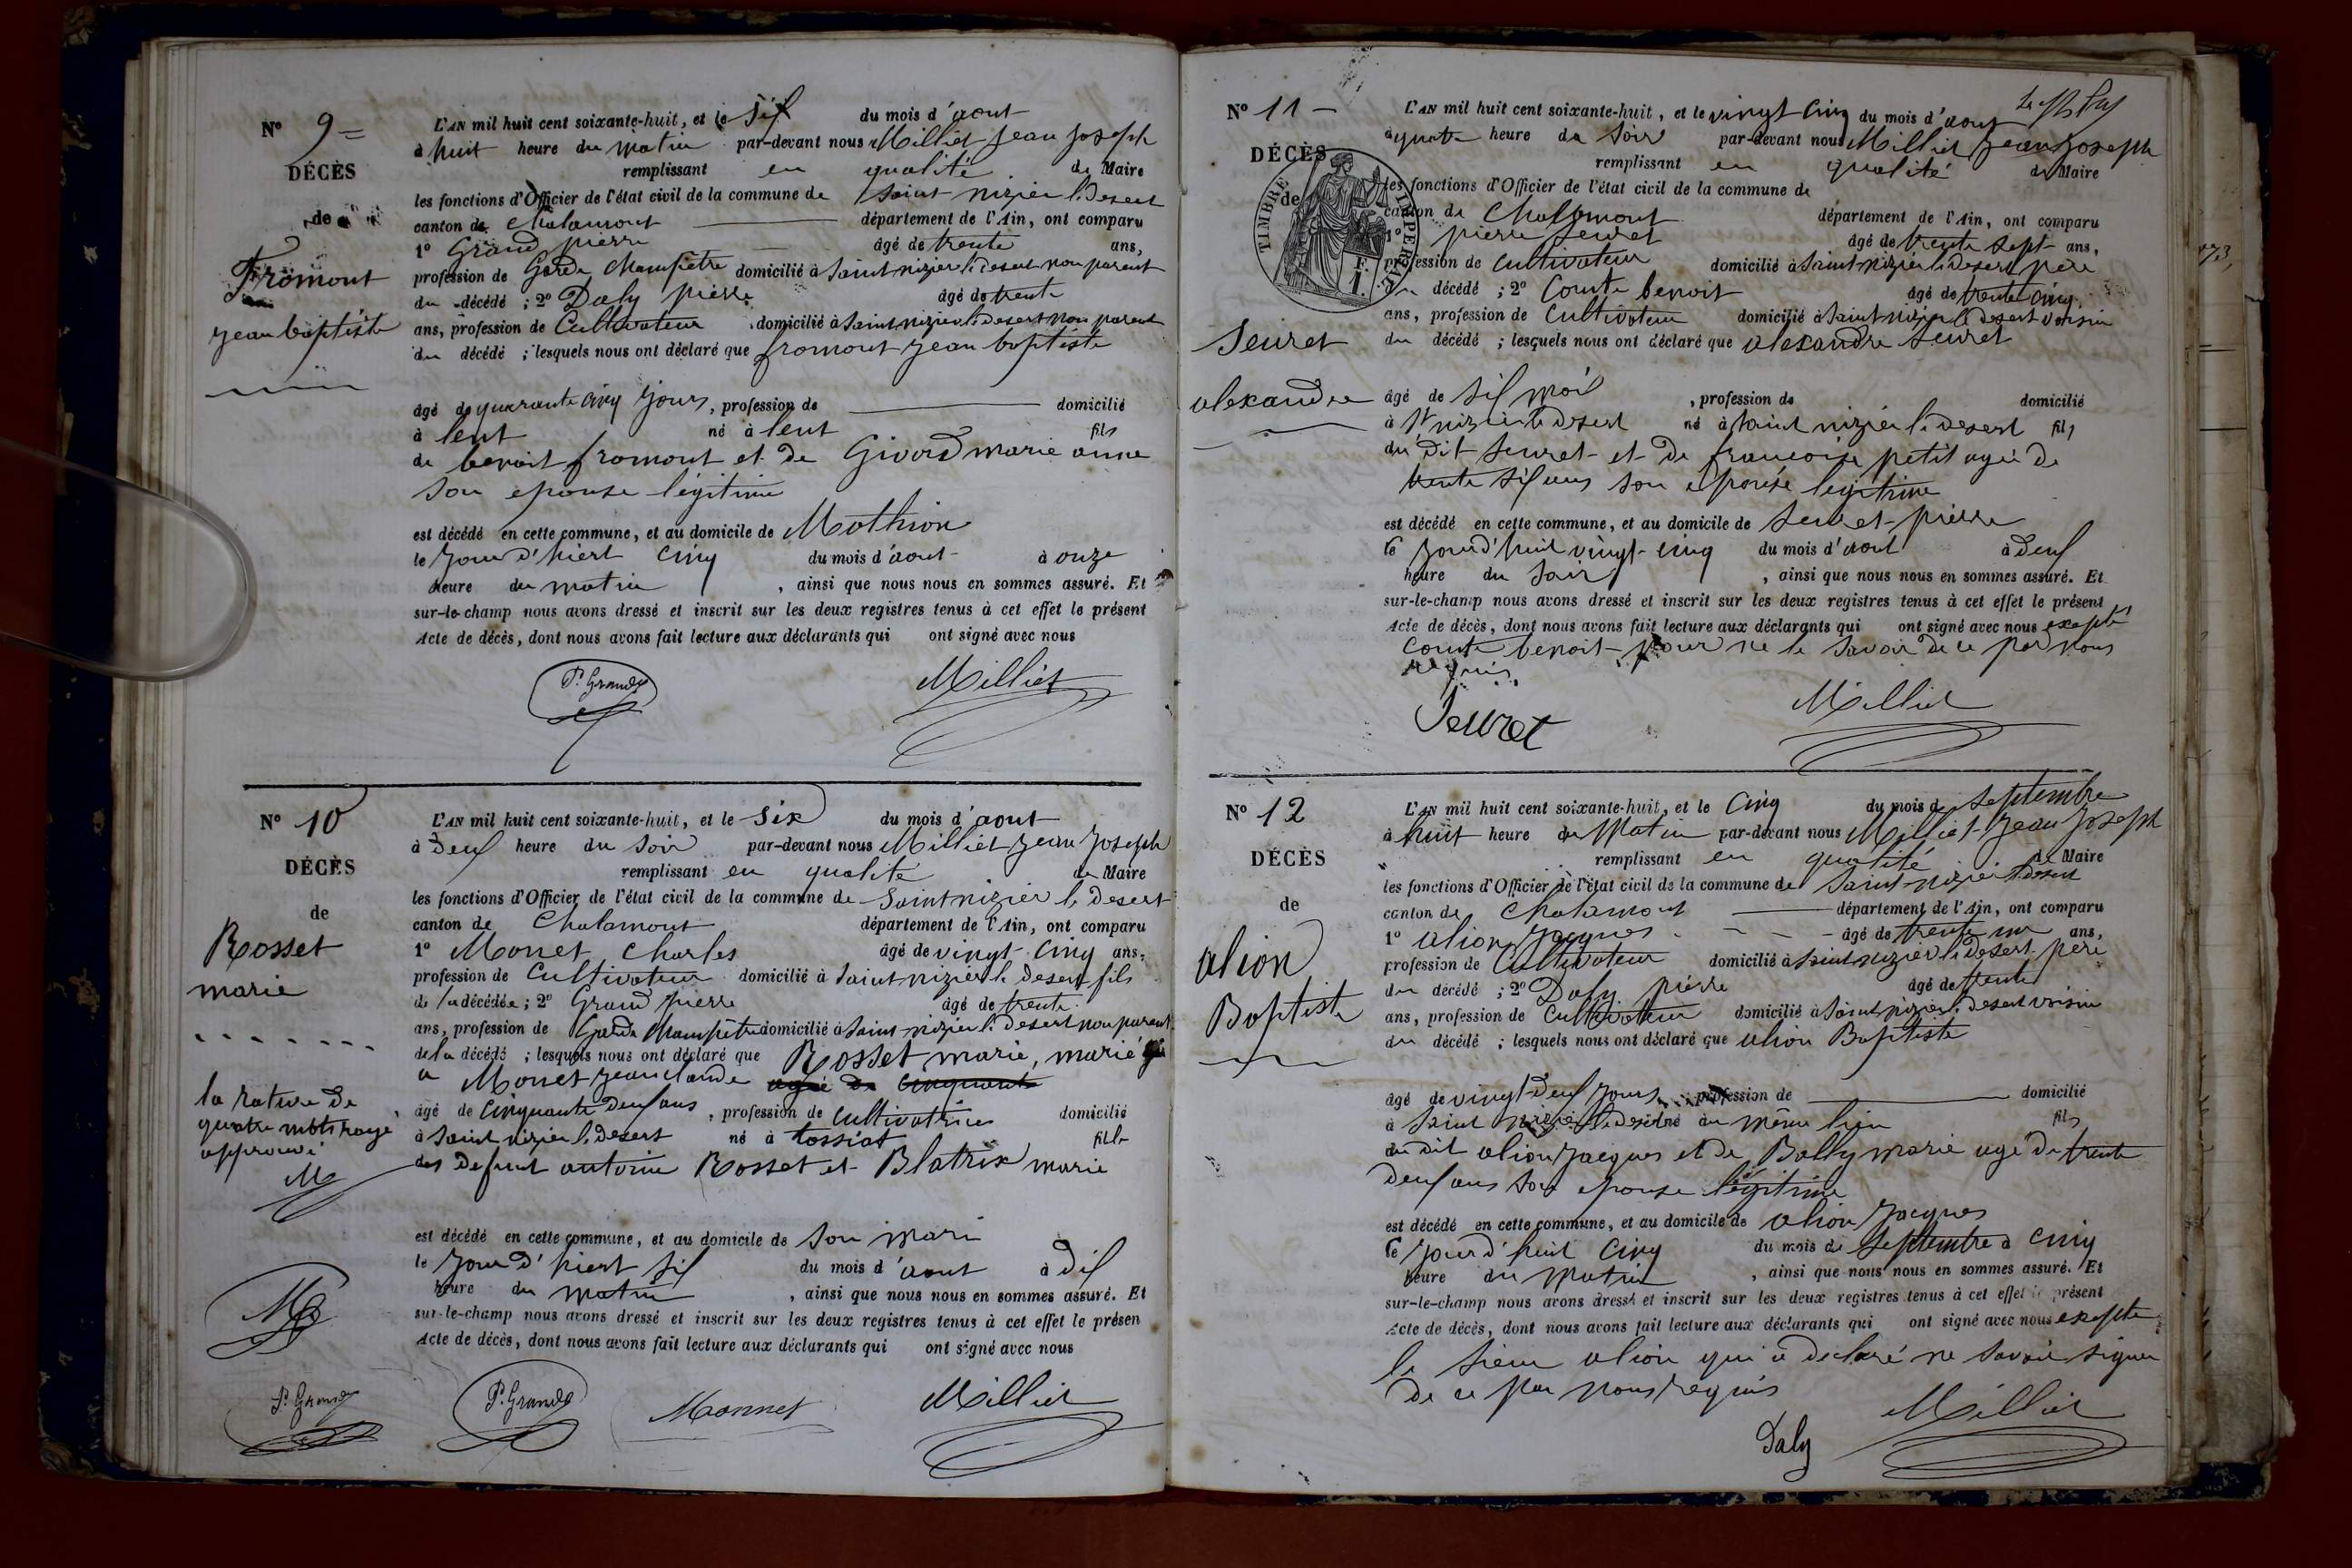 N° 9 =
DÉCÈS
de
Fromont
jean baptiste
L'AN mil huit cent soixante-huit, et le Six du mois d'aout
à huit heure du matin par-devant nous Milliet jean joseph
remplissant en qualité de Maire
les fonctions d'Officier de l'état civil de la commune de Saint nizier le Desert
canton de Chalamont département de l'Ain, ont comparu
1° Grand pierre âgé de trente ans,
profession de Garde Champetre domicilié à Saint nizier le desert non parent
du décédé ; 2° Daly pierre âgé de trente
ans, profession de Cultivateur domicilié à Saint nizier le desert non parent
du décédé ; lesquels nous ont déclaré que fromont jean baptiste
âgé de quarante cinq jours, profession de domicilié
à lent né à lent fils
de benoit fromont et de Givord marie anne
Son epouse légitime
est décédé en cette commune, et au domicile de Mothion
le jour d'hiert cinq du mois d'aout à onze
heure du matin , ainsi que nous nous en sommes assuré. Et
sur-le-champ nous avons dressé et inscrit sur les deux registres tenus à cet effet le présent
Acte de décès, dont nous avons fait lecture aux déclarants qui ont signé avec nous
P. Grand Milliet
N° 10
DÉCÈS
de
Rosset
marie
la rature de
quatre mots rayé
approuvé
M
P. Grand
L'AN mil huit cent soixante-huit, et le Six du mois d'aout
à Deux heure du Soir par-devant nous Milliet jean joseph
remplissant en qualité de Maire
les fonctions d'Officier de l'état civil de la commune de Saint nizier le Desert
canton de Chalamont département de l'Ain, ont comparu
1° Monet Charles âgé de vingt-cinq ans,
profession de Cultivateur domicilié à Saint nizier le Desert fils
de la décédée ; 2° Grand pierre âgé de trente
ans, profession de Garde Champetre domicilié à Saint-nizier le Desert non parent
de la décédé ; lesquels nous ont déclaré que Rosset marie, marié
a Monet jean claude agée de cinquante
âgé de cinquante Deux ans, profession de cultivatrice domicilié
à Saint nizier le Desert né à tossiat fille
des Defunt antoine Rosset et Blatrix marie
est décédé en cette commune, et au domicile de Son mari
le jour d'hiert Six du mois d'aout à dix
heure du matin , ainsi que nous nous en sommes assuré. Et
sur-le-champ nous avons dressé et inscrit sur les deux registres tenus à cet effet le présen
Acte de décès, dont nous avons fait lecture aux déclarants qui ont signé avec nous
P. Grand Monnet Milliet
N° 11 -
DÉCÈS
de
TIMBRE IMPERIAL
F.
1.
Seuret
alexandre
L'AN mil huit cent soixante-huit, et le vingt cinq du mois d'aout
à quatre heure du Soir par-devant nous Milliet jean joseph
remplissant en qualité de Maire
les fonctions d'Officier de l'état civil de la commune de
canton de Chalamont département de l'Ain, ont comparu
1° pierre Seuret âgé de trente sept ans,
profession de Cultivateur domicilié à Saint nizier le desert père
du décédé ; 2° Comte benoit âgé de trente cinq
ans, profession de Cultivateur domicilié à Saint nizier le Desert voisin
du décédé ; lesquels nous ont déclaré que alexandre Seuret
âgé de Six moi , profession de domicilié
à St nizier le desert né à Saint nizier le desert fils
du Dit Seuret et de francoise petit agée de
trente Six ans Son epouse legitime
est décédé en cette commune, et au domicile de Seuret-pierre
le jourd'huit vingt-cinq du mois d'aout à Deux
heure du Soir , ainsi que nous nous en sommes assuré. Et
sur-le-champ nous avons dressé et inscrit sur les deux registres tenus à cet effet le présent
Acte de décès, dont nous avons fait lecture aux déclarants qui ont signé avec nous excepte
Comte benoit pour ne le Savoir de ce par nous
requis.
Seuret Milliet
N° 12
DÉCÈS
de
alion
Baptiste
L'AN mil huit cent soixante-huit, et le Cinq du mois de Septembre
à huit heure du Matin par-devant nous Milliet jean joseph
remplissant en qualité de Maire
les fonctions d'Officier de l'état civil de la commune de Saint-nizier le desert
canton de Chalamont département de l'Ain, ont comparu
1° alion jacques âgé de trente un ans,
profession de Cultivateur domicilié à Saint nizier le Desert père
du décédé ; 2° Daly pierre âgé de trente
ans, profession de Cultivateur domicilié à Saint nizier le desert voisin
du décédé ; lesquels nous ont déclaré que alion Baptiste
âgé de vingt Deux jours, profession de domicilié
à Saint nizier le desert né au même lieu fils
du dit alion jacques et de Bally marie agé de trente
Deux ans Son epouse légitime
est décédé en cette commune, et au domicile de alion jacques
le jourd'huit Cinq du mois de Septembre à cinq
heure du matin , ainsi que nous nous en sommes assuré. Et
sur-le-champ nous avons dressé et inscrit sur les deux registres tenus à cet effet le présent
Acte de décès, dont nous avons fait lecture aux déclarants qui ont signé avec nous excepte
le Sieur alion qui a declaré ne Savoir Signer
de ce par nous requis
Daly Milliet